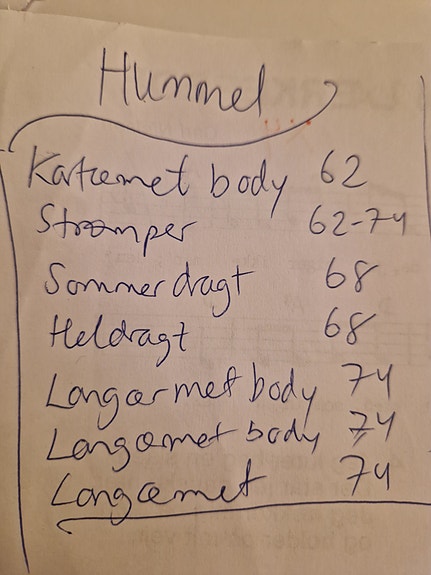 Hummel
Kortærmet body 62
Strømper 62-74
Sommerdragt 68
Heldragt 68
Langærmet body 74
Langæmet body 74
Langæmet 74